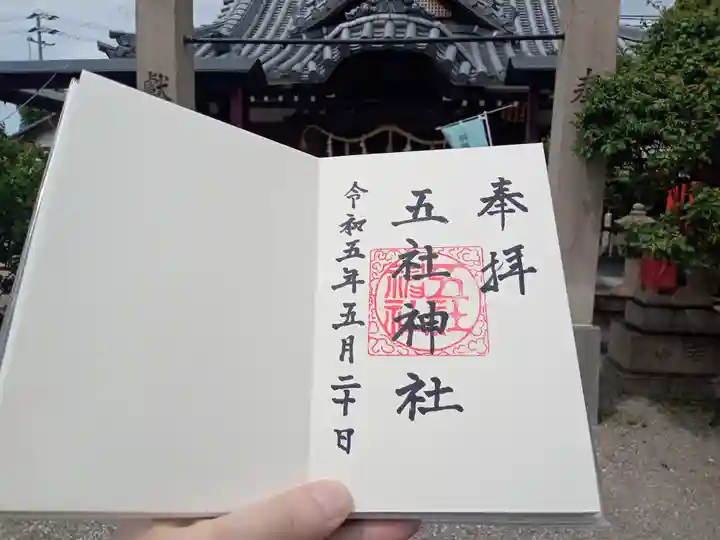 奉拝
五社神社
令和五年五月二十日
献
奉